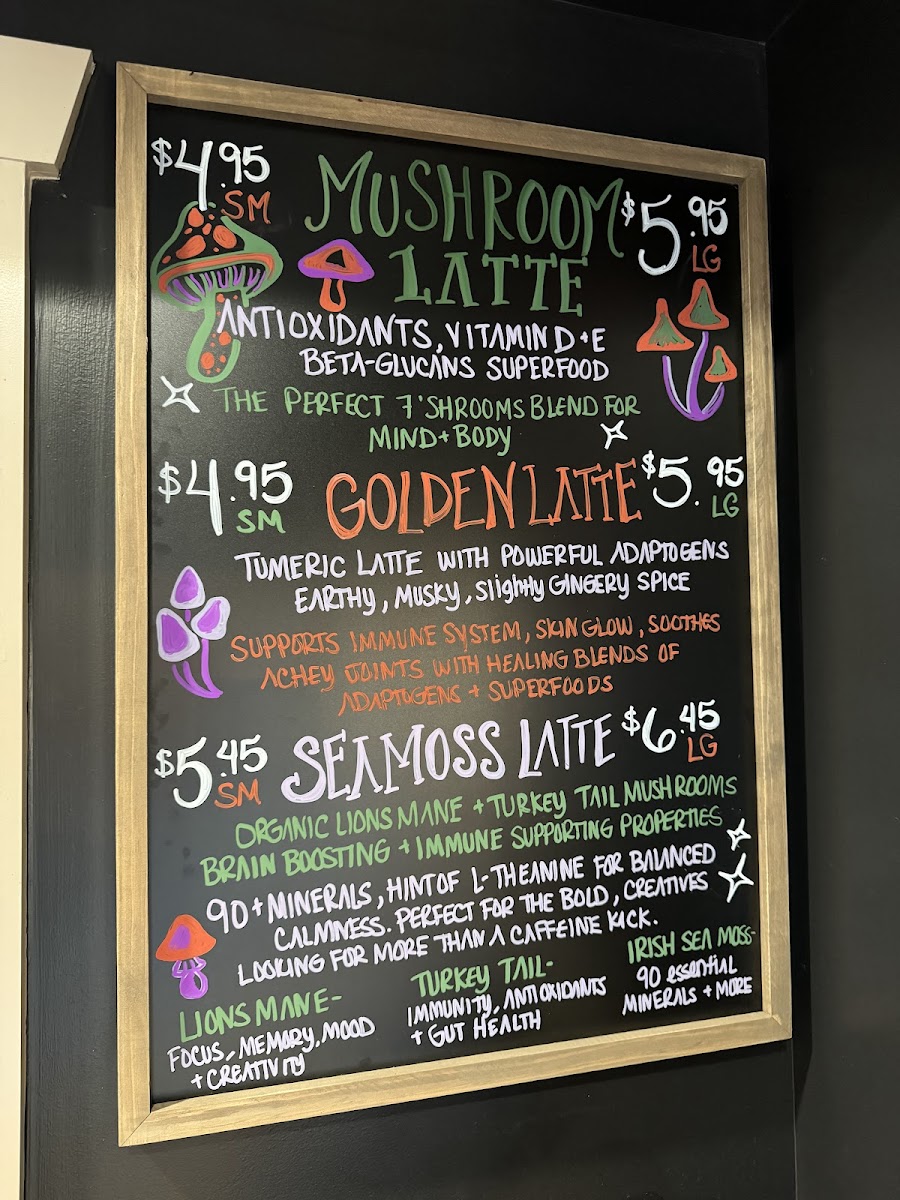 $4.95 SM
MUSHROOM
LATTE
$5.95 LG
ANTIOXIDANTS, VITAMIN D+E
BETA-GLUCANS SUPERFOOD
THE PERFECT 7'SHROOMS BLEND FOR
MIND+BODY
$4.95 SM
GOLDEN LATTE
$5.95 LG
TUMERIC LATTE WITH POWERFUL ADAPTOGENS
EARTHY, MUSKY, Slightly GINGERY SPICE
SUPPORTS IMMUNE SYSTEM, SKIN GLOW, SOOTHES
ACHEY JOINTS WITH HEALING BLENDS OF
ADAPTOGENS + SUPERFOODS
$5.45 SM
SEAMOSS LATTE
$6.45 LG
ORGANIC LIONS MANE + TURKEY TAIL MUSHROOMS
BRAIN BOOSTING + IMMUNE SUPPORTING PROPERTIES
90+ MINERALS, HINT OF L-THEANINE FOR BALANCED
CALMNESS. PERFECT FOR THE BOLD, CREATIVES
LOOKING FOR MORE THAN A CAFFEINE KICK.
LIONS MANE-
FOCUS, MEMORY, MOOD
+ CREATIVITY
TURKEY TAIL-
IMMUNITY, ANTIOXIDANTS
+ GUT HEALTH
IRISH SEA MOSS-
90 essential
MINERALS + MORE